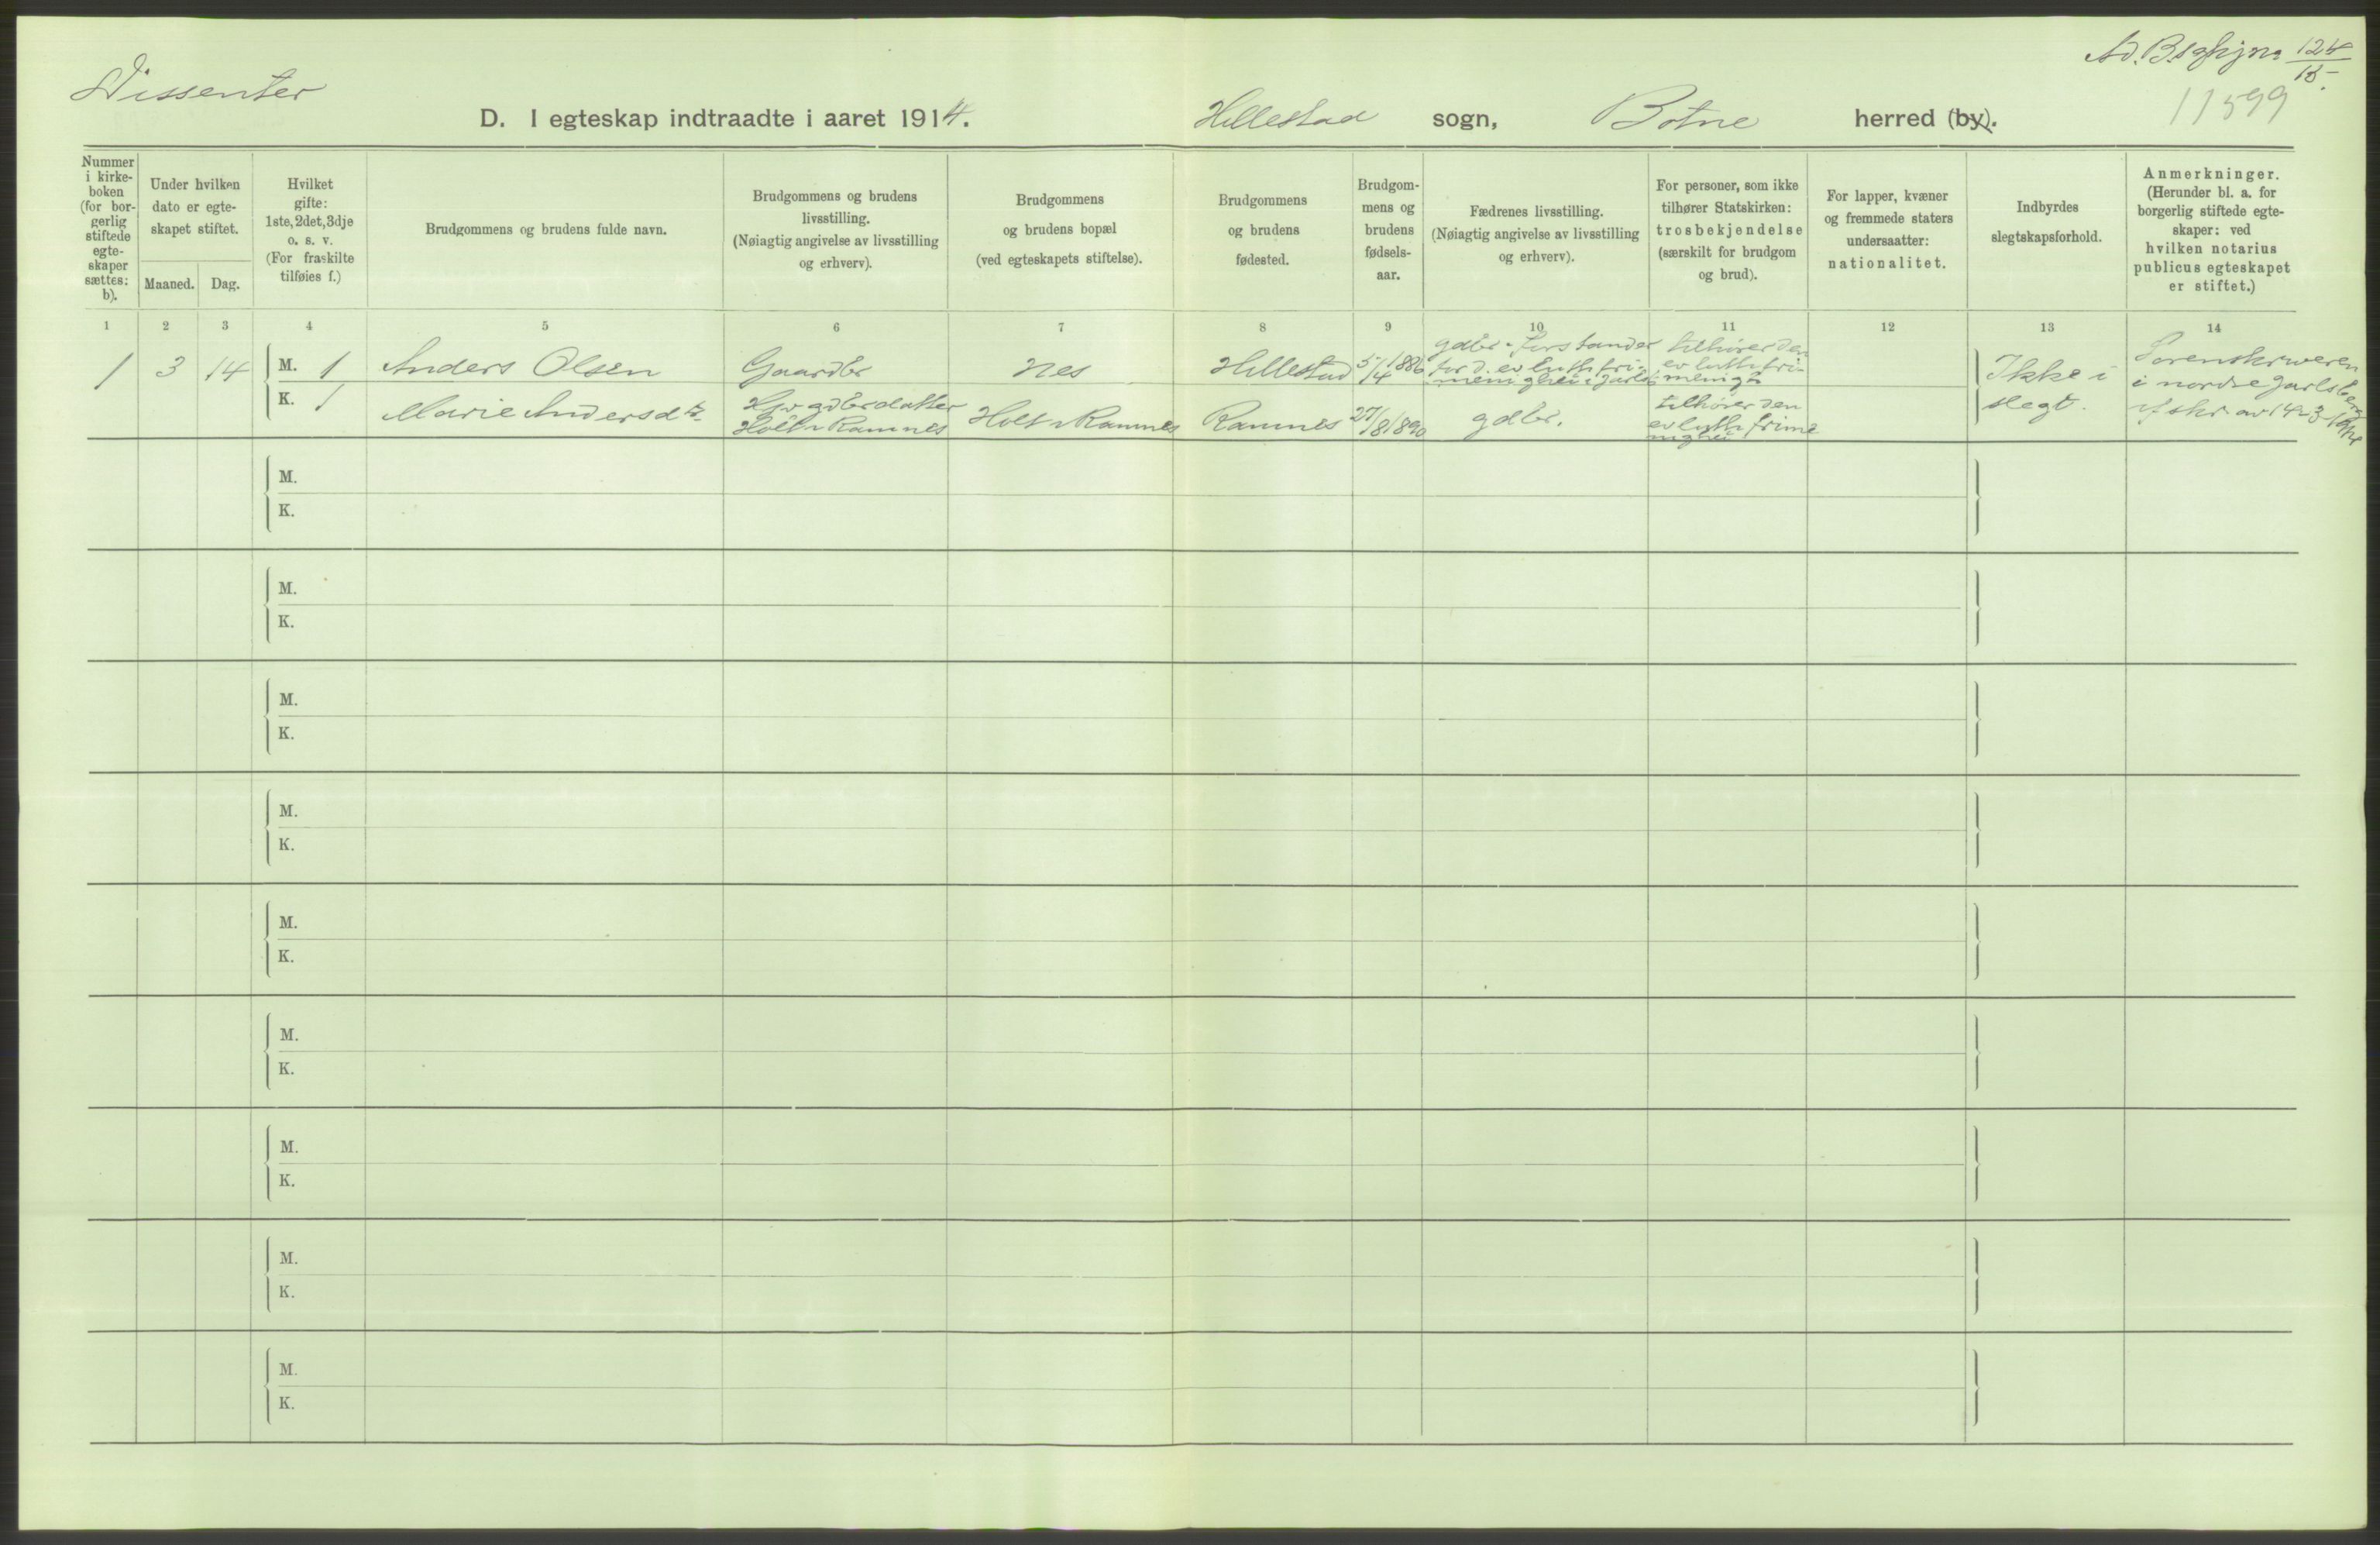 Dissenter
124
15
11599
D. I egteskap indtraadte i aaret 1914. Hillestad sogn, Botne herred (by).
Nummer
i kirke-
boken
(for bor-
gerlig
stiftede
egte-
skaper
sættes:
b).
Under hvilken
dato er egte-
skapet stiftet.
Maaned. Dag.
Hvilket
gifte:
1ste, 2det, 3dje
o. s. v.
(For fraskilte
tilføies f.)
Brudgommens og brudens fulde navn.
Brudgommens og brudens
livsstilling.
(Nøiagtig angivelse av livsstilling
og erhverv).
Brudgommens
og brudens bopæl
(ved egteskapets stiftelse).
Brudgommens
og brudens
fødested.
Brudgom-
mens og
brudens
fødsels-
aar.
Fædrenes livsstilling.
(Nøiagtig angivelse av livsstilling
og erhverv).
For personer, som ikke
tilhører Statskirken:
trosbekjendelse
(særskilt for brudgom
og brud).
For lapper, kvæner
og fremmede staters
undersaatter:
nationalitet.
Indbyrdes
slegtskapsforhold.
Anmerkninger.
(Herunder bl. a. for
borgerlig stiftede egte-
skaper: ved
hvilken notarius
publicus egteskapet
er stiftet.)
1 2 3 4 5 6 7 8 9 10 11 12 13 14
1 3 14
M. 1 Anders Olsen Gaardbr Nes Hillestad 5/4 1886
gdbr. forstander
for d. ev luth fri-
menighei i Jarls
tilhører den
ev luth fri-
menigh
K. 1 Marie Andersdtr
gdbrdatter
Holt i Ramnes
Holt i Ramnes Ramnes 27/8 1890 gdbr.
tilhører den
ev luth frime
nighei
Ikke i
slegt.
Sorenskriveren
i nordre Jarlsberg
skr. av 14-3-14
M.
K.
M.
K.
M.
K.
M.
K.
M.
K.
M.
K.
M.
K.
M.
K.
M.
K.